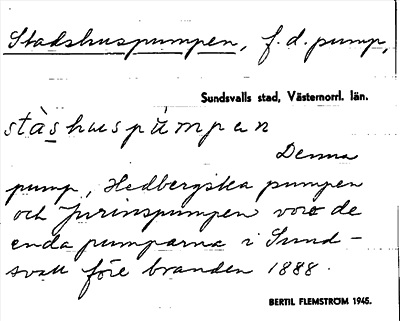 Stadshuspumpen, f.d. pump,
Sundsvalls stad, Västernorrl. län.
stàshuspùmpen
Denna
pump, Hedbergska pumpen
och Jurinspumpen voro de
enda pumparna i Sund-
svall före branden 1888.
BERTIL FLEMSTRÖM 1945.